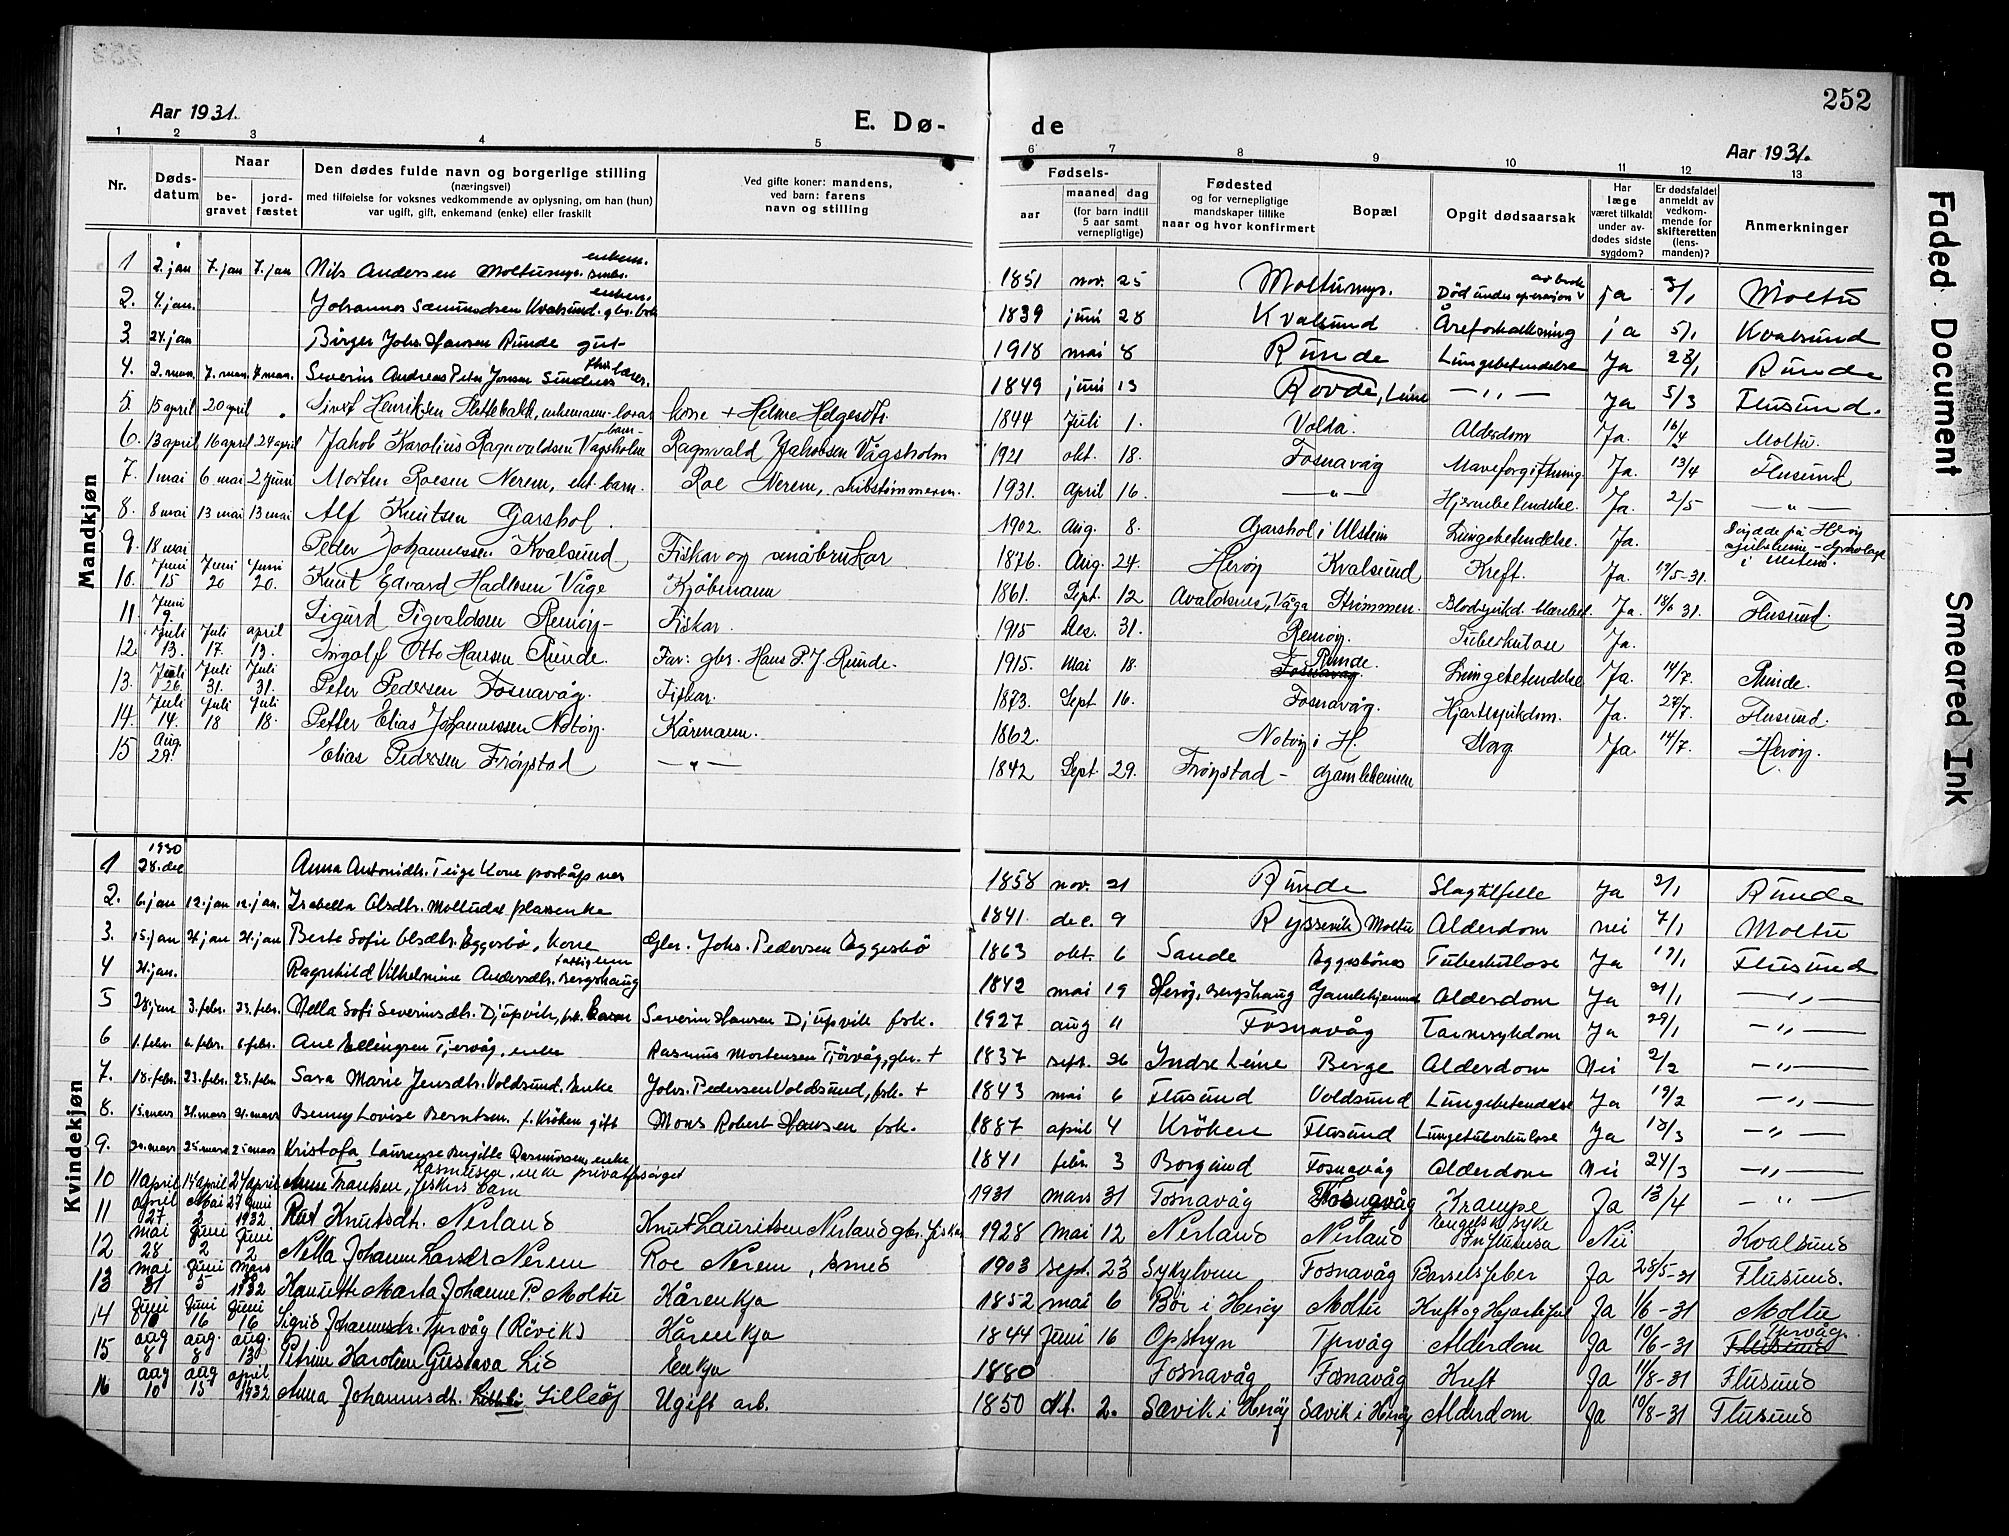 252
Aar 1931.
E. Dø-
de
Aar 1931.
1 2 3 4 5 6 7 8 9 10 11 12 13
Nr.
Døds-
datum
Naar
be-
gravet
jord-
fæstet
Den dødes fulde navn og borgerlige stilling
(næringsvei)
med tilføielse for voksnes vedkommende av oplysning, om han (hun)
var ugift, gift, enkemand (enke) eller fraskilt
Ved gifte koner: mandens,
ved barn: farens
navn og stilling
Fødsels-
aar
maaned dag
(for barn indtil
5 aar samt
vernepligtige)
Fødested
og for vernepligtige
mandskaper tillike
naar og hvor konfirmert
Bopæl
Opgit dødsaarsak
Har
læge
været tilkaldt
under av-
dødes sidste
sygdom?
Er dødsfaldet
anmeldt av
vedkom-
mende for
skifteretten
(lens-
manden)?
Anmerkninger
Mandkjøn
1 2. jan 7. jan 7. jan Nils Andersen Moltumyr. enkem. 1851 nov. 25 Moltumyr. Død under operasjon ja 3/1 Moltu
2. 4. jan. Johannes Sæmundsen Kvalsund. enkem. 1839 juni 28 Kvalsund Åreforkalkning ja 5/1 Kvalsund
3. 24. jan Birger Johs. Hansen Runde gut 1918 mai 8 Runde Lungebetendelse Ja 28/1 Runde
4. 2. mars. 7. mars. 7 mars. Severin Andreas Peter Jonsen 1849 juni 13 Rovde, Leine — „ — Ja 5/3 Flusund.
5. 15 april 20 april Henriksen Slettebakk, enkemann kone + Helene Helgesdtr. 1844 Juli 1. Volda. Alderdom Ja. 16/4 Moltu.
6. 13 april 16 april 24 april Jakob Karolius Ragnvaldsen Vågsholm barn Ragnvald Jakobsen Vågsholm 1921 okt. 18. Fosnavåg Maveforgiftning Ja. 13/4 Flusund
7. 1 mai 6 mai 2 juni Morten Roesen Nerem, ekt. barn. Roe Nerem, skibstømmerm. 1931. april 16. — „ — Hjernebetendelse. Ja. 2/5 — „ —
8. 8 mai 13 mai 13 mai Alf Knutsen Garshol. 1902. Aug. 8. Garshol i Ulstein Lungebetendelse. Ja. Døjde på Herøy
9. 18 mai Peder Johannessen Kvalsund Fiskar og småbrukar 1876. Aug. 24. Herøy Kvalsund Kreft. Ja. 19/5-31.
10. Juni 15 Juni 20 Juni 20. Knut Edvard Hadlesen Våge Kjøbmann 1861. Sept. 12 Avaldsnes, Våga Strømmen. Ja. 18/6 31. Flusund.
11. Juni 9. Sigurd Sigvaldsen Remøy Fiskar. 1915 Des. 31. Remøy. Tuberkulose Ja.
12. Juli 13. Juli 17. april 13. Ingolf Otto Hansen Runde. Far: gbr. Hans P. J. Runde. 1915. Mai 18. Fosnavåg Runde. Lungebetendelse Ja. 14/7. Runde.
13. Juli 26. Juli 31. Juli 31. Peter Pedersen Fosnavåg. Fiskar. 1873. Sept 16. Fosnavåg. Hjartesjukdom. Ja. 27/7. Flusund.
14. Juli 14. Juli 18 Juli 18. Petter Elias Johannessen Notøy. Kårmann. 1862. Notøy i H. Slag Ja. 14/7. Herøy.
15 Aug. 29. Elias Pedersen Frøystad — „ — 1842 Sept. 29. Frøystad - Gamleheimen
Kvindekjøn
1 1930 28. des Anna Antonidtr. Teige Kone poståpner 1858 nov. 21 Runde Slagtilfelle Ja 2/1 Runde
2. 6. jan 12. jan 12. jan. Isabella Olsdtr. Moltudal plassenke 1841. dec. 9 Ryssevik Moltu Alderdom nei 7/1 Moltu
3. 15. jan 21. jan 21. jan Berte Sofie Olsdtr. Eggesbø, kone Gbr. Johs. Pedersen Eggesbø 1863 okt. 6 Sande Eggesbønes Tuberkulose Ja 17/1 Flusund
4 21. jan. Ragnhild Vilhelmine Andersdtr. Bergshaug fattiglem 1842 mai 19 Herøy, Bergshaug Gamlehjemmet Alderdom Ja 21/1 — „ —
5 28. jan 3. febr. 23. febr. Nella Sofi Severinsdtr. Djupvik, fsk. barn Severin Hansen Djupvik fsk. 1927 aug 11 Fosnavåg Tarmsykdom Ja 29/1 — „ —
6 1. febr. 6. febr. 6. febr. Ane Ellingsen Tjervåg, enke Rasmus Mortensen Tjørvåg, gbr. + 1837 sept. 26 Indre Leine Berge Alderdom Nei 2/2 — „ —
7. 18. febr. 23. febr. 23. febr. Sara Marie Jensdtr. Voldsund. Enke Johs. Pedersen Voldsund, fsk. + 1843 mai 6 Flusund Voldsund Lungebetendelse Ja 19/2 — „ —
8. 15. mars 21. mars 21. mars Benny Lovise Berntsen f. Kröken gift Mons Robert Hansen fsk. 1887 april 4 Kröken Flusund Lungetuberkulose Ja 18/3 — „ —
9. 20. mars 25. mars 25. mars Kristofa Laurense Birgitte Rasmussen, enke 1841 febr. 3 Borgund Fosnavåg Alderdom Nei 24/3 — „ —
10 11 april 14 april 24 april Anne Frantsen, fiskers barn 1931 mars 31 Fosnavåg Fosnavåg Krampe Ja 13/4 — „ —
11 april 27 Mai 2 27 juni 1932 Rut Knutsdtr. Nerland Knut Lauritsen Nerland gbr. fiskar 1928 Mai 12 Nerland Nerland Engelsk syke Influensa Nei Kvalsund
12 mai 28 Juni 2 Juni 2 Nella Johanne Larsdtr Nerem Roe Nerem, smed 1903 sept. 23 Sykylven Fosnavåg Barselsfeber Ja 28/5-31 Flusund.
13 mai 31 Juni 5 mars 1932 Hansette Marta Johanne P. Moltu Kårenkja 1852 mai 6 Bø i Herøy Moltu Kreft og Hjartefeil Ja 1/6-31 Moltu
14 Juni 10 Juni 16 Juni 16 Sigrid Johannsdtr. Tjrvåg (Røvik) Kårenkja 1844 Juni 16 Opstryn Tjrvåg Alderdom Ja 10/6-31 Flusund Tjrvåg.
15 aug 8 aug. 8 aug. 13 Petrine Karoline Gustava Lid Enkja 1880 Fosnavåg Fosnavåg Kreft Ja 11/8-31 Flusund
16 aug 10 aug 15 april 1932 Anna Johannsdtr. Lilleøy Ugift arb. 1850 okt. 2. Sævik i Herøy Sævik i Herøy Alderdom Ja 10/8-31 Flusund
Faded Document
Smeared Ink